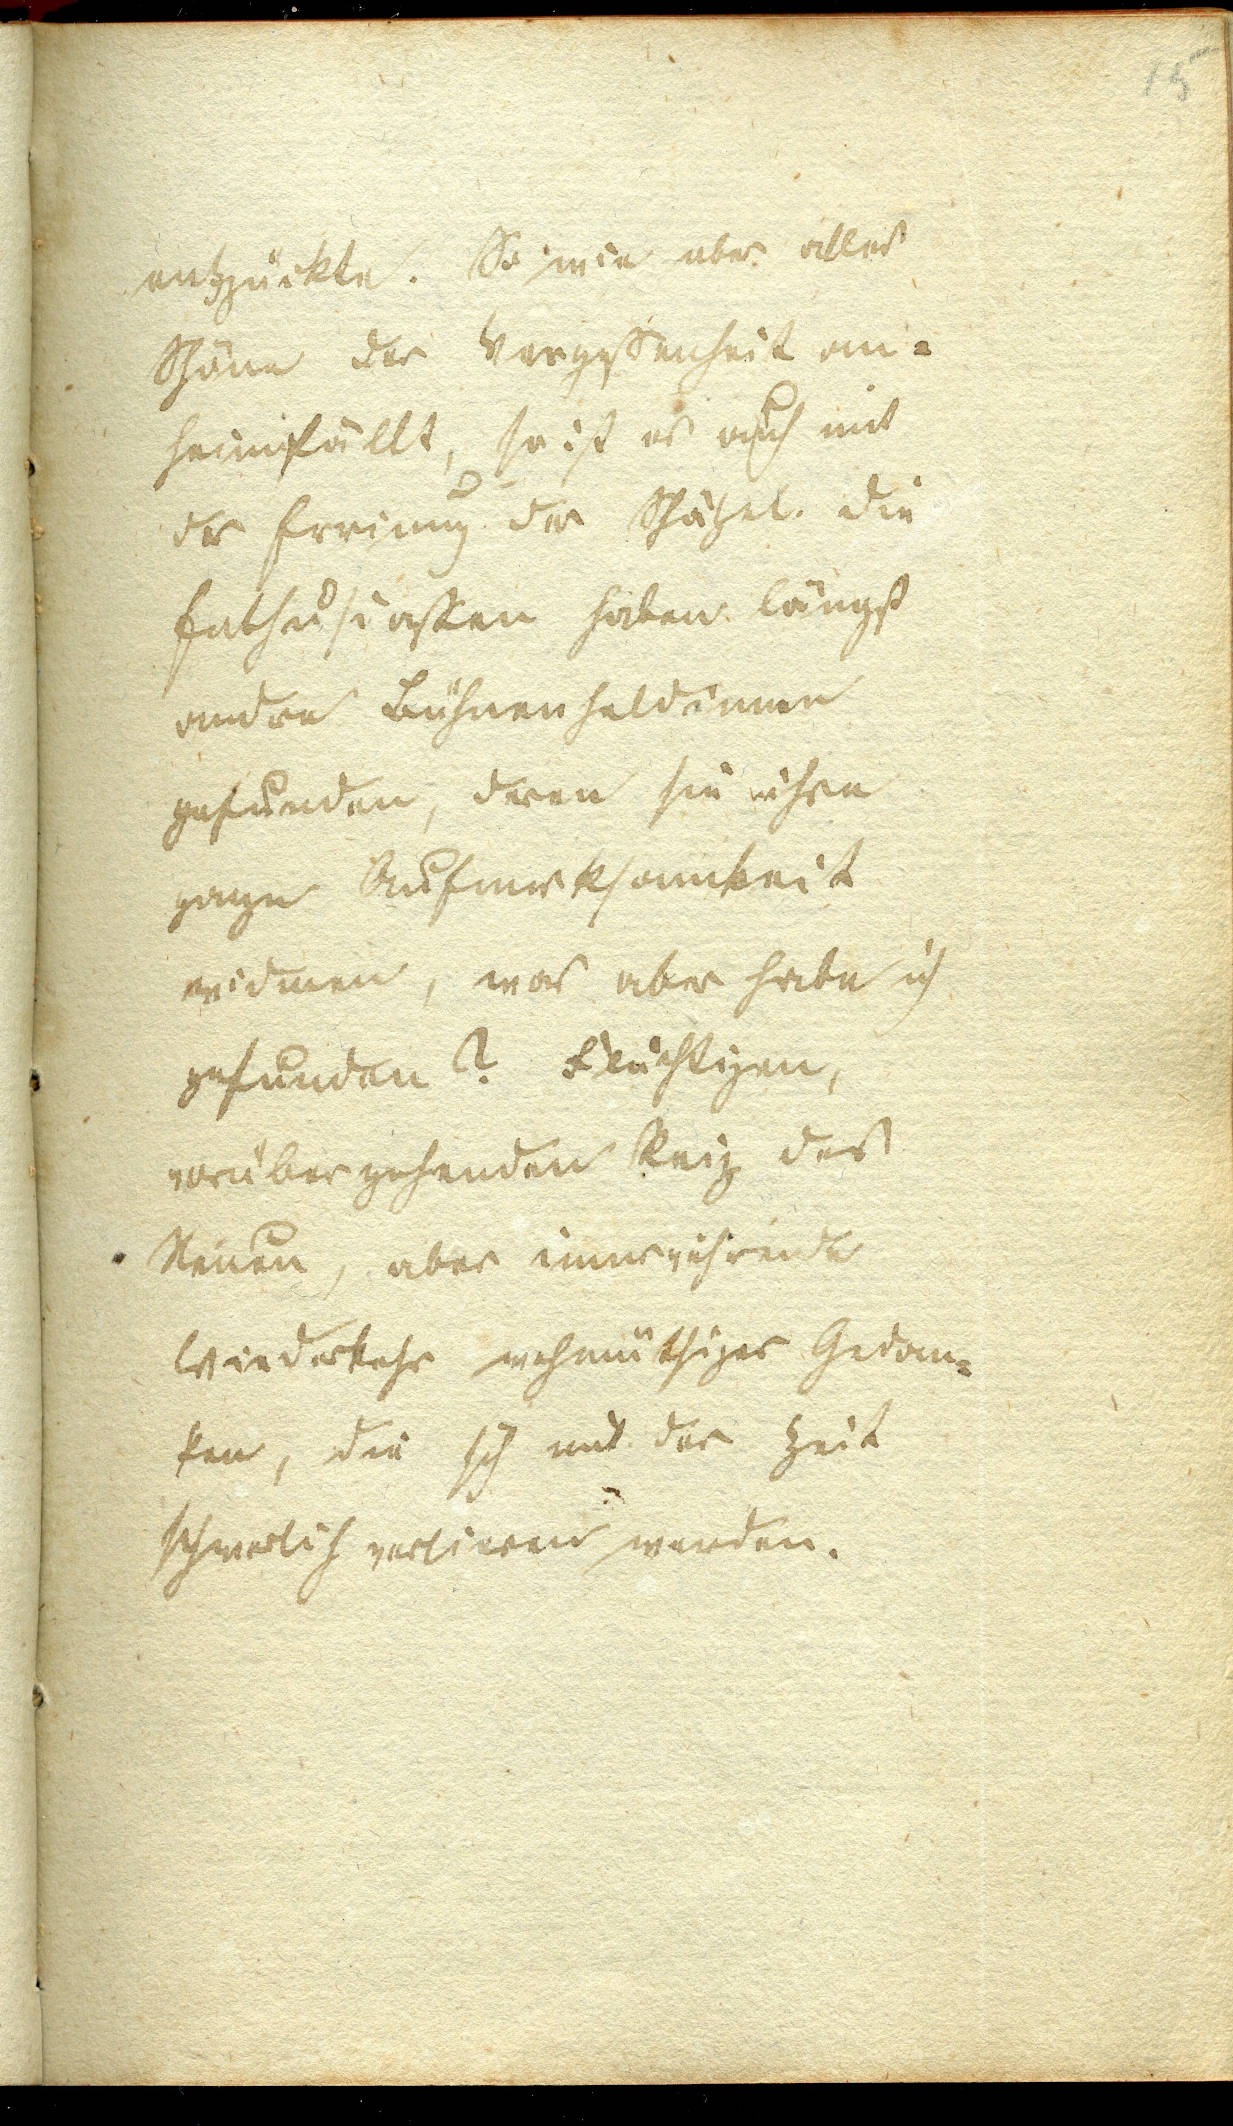 15
entzückte. So wie aber alles
Schöne der Vergessenheit an=
heimfällt, so ist es auch mit
der Erinnrung der Schätzel. Die
Enthusiasten haben längst
andre Bühnenheldinnen
gefunden, deren sie ihre
ganze Aufmerksamkeit
widmen, was aber habe ich
gefunden? Flüchtigen,
vorübergehenden Reiz des
Neuen, aber immerwährende
Wiederkehr wehmüthiger Gedan=
ken, die sich mit der Zeit
schwerlich verlieren werden.